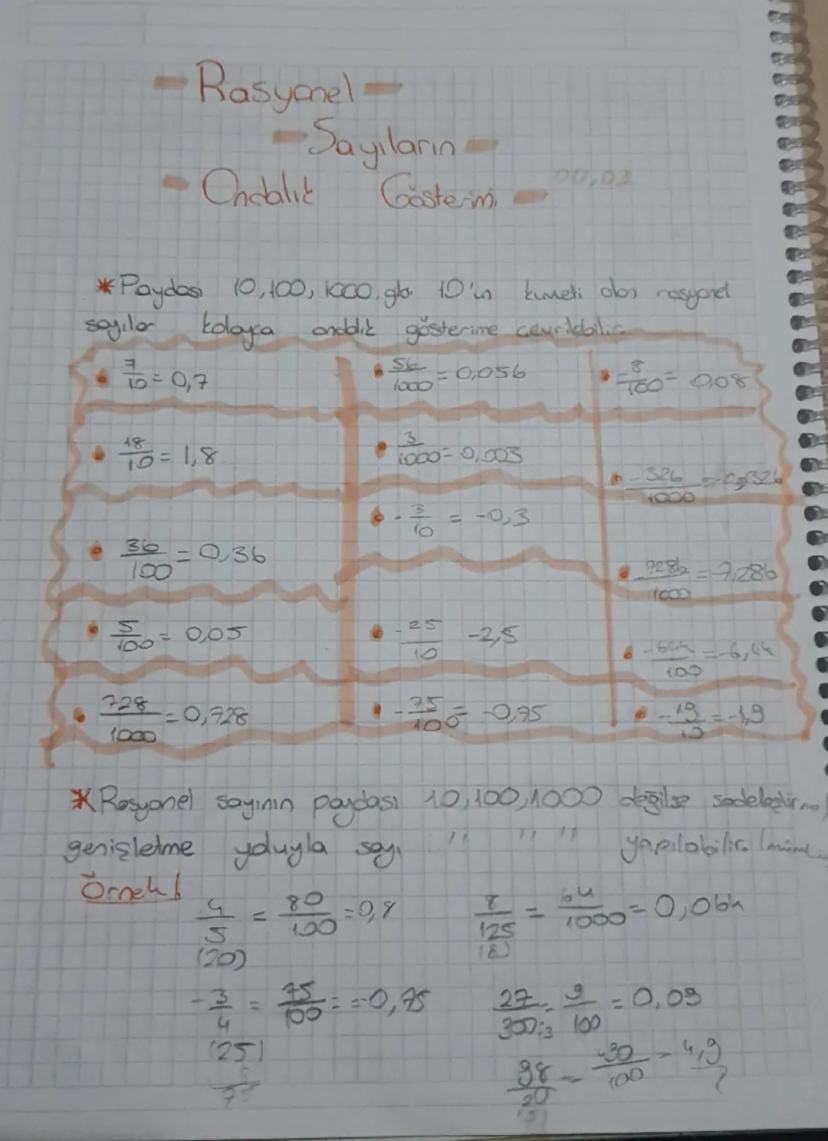 Rasyonel
Sayıların
Ondalık Gösterimi
* Paydası 10,100,1000 gibi 10'un kuvveti olan rasyonel
sayılar kolayca ondalık gösterime çevrilebilir.
• 7/10 = 0,7
• 18/10 = 1,8
• 36/100 = 0,36
• 5/100 = 0,05
• 728/1000 = 0,728
• 56/1000 = 0,056
• 3/1000 = 0,003
• -3/10 = -0,3
• -25/10 -2,5
• -75/100 = -0,75
• -8/100 = 0,08
• -326/1000 = -0,326
• 7286/1000 = 7,286
• -644/100 = -6,44
• -19/10 = -1,9
* Rasyonel sayının paydası 10,100,1000 değilse sadeleştirme,
genişletme yoluyla sayı " " " yapılabilir.
Örnek!
4/5 = 80/100 = 0,8
(20)
8/125 = 64/1000 = 0,064
(8)
-3/4 = 75/100 = -0,75
(25)
27/300:3 = 9/100 = 0,09
98/20 = /100 = 4,9